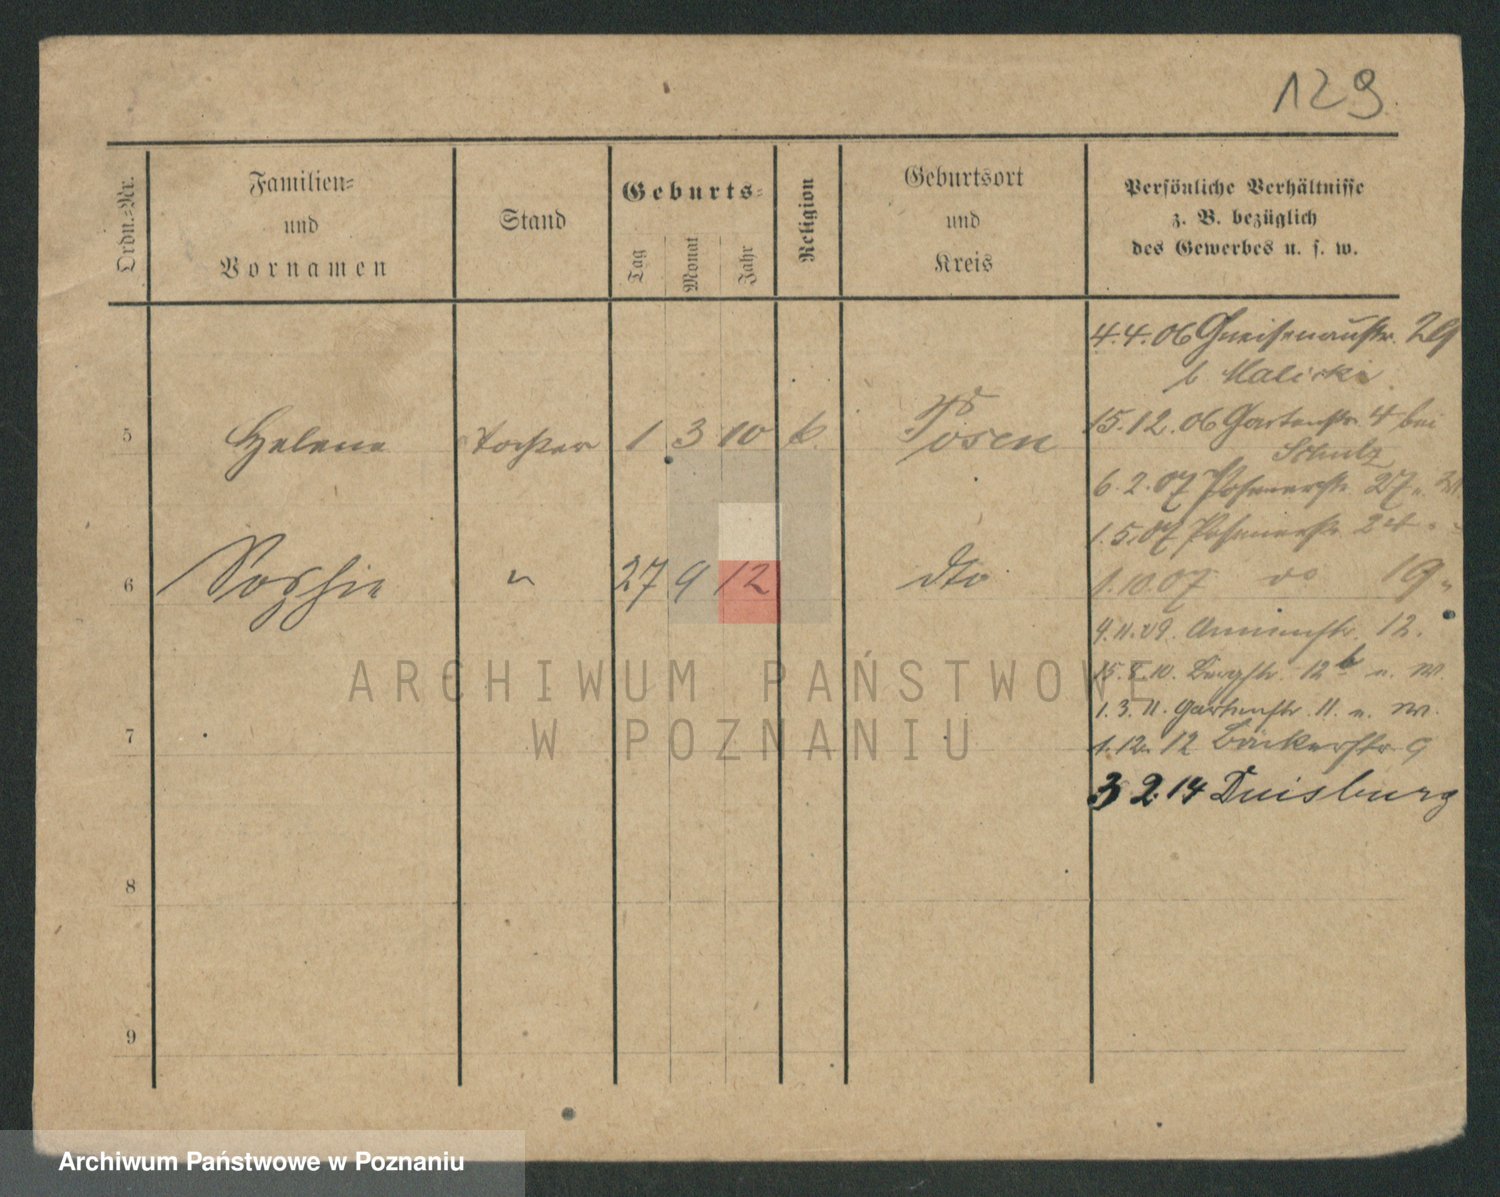 129
Ordn.-Nr.
Familien-
und
Vornamen
Stand
Geburts-
Tag
Monat
Jahr
Religion
Geburtsort
und
Kreis
Persönliche Verhältnisse
z. B. bezüglich
des Gewerbes u. s. w.
4.4.06 Gneisenaustr. 29
b. Malicki
5 Helene Tochter 1 3 10 k. Posen
15.12.06 Gartenstr. 4 bei
Schulz
6.2.07 Posenerstr. 27
1.5.07 Posenerstr. 24
6 Sophie " 27 9 12 dto
1.10.07 do 19
9.11.09. Annenstr. 12.
15.8.10. Bergstr. 12b u. W.
1.3.11. Gartenstr. 11. u. W.
7
1.12.12 Bäckerstr. 9
3 2.14 Duisburg
8
9
ARCHIWUM PAŃSTWOWE
W POZNANIU
Archiwum Państwowe w Poznaniu